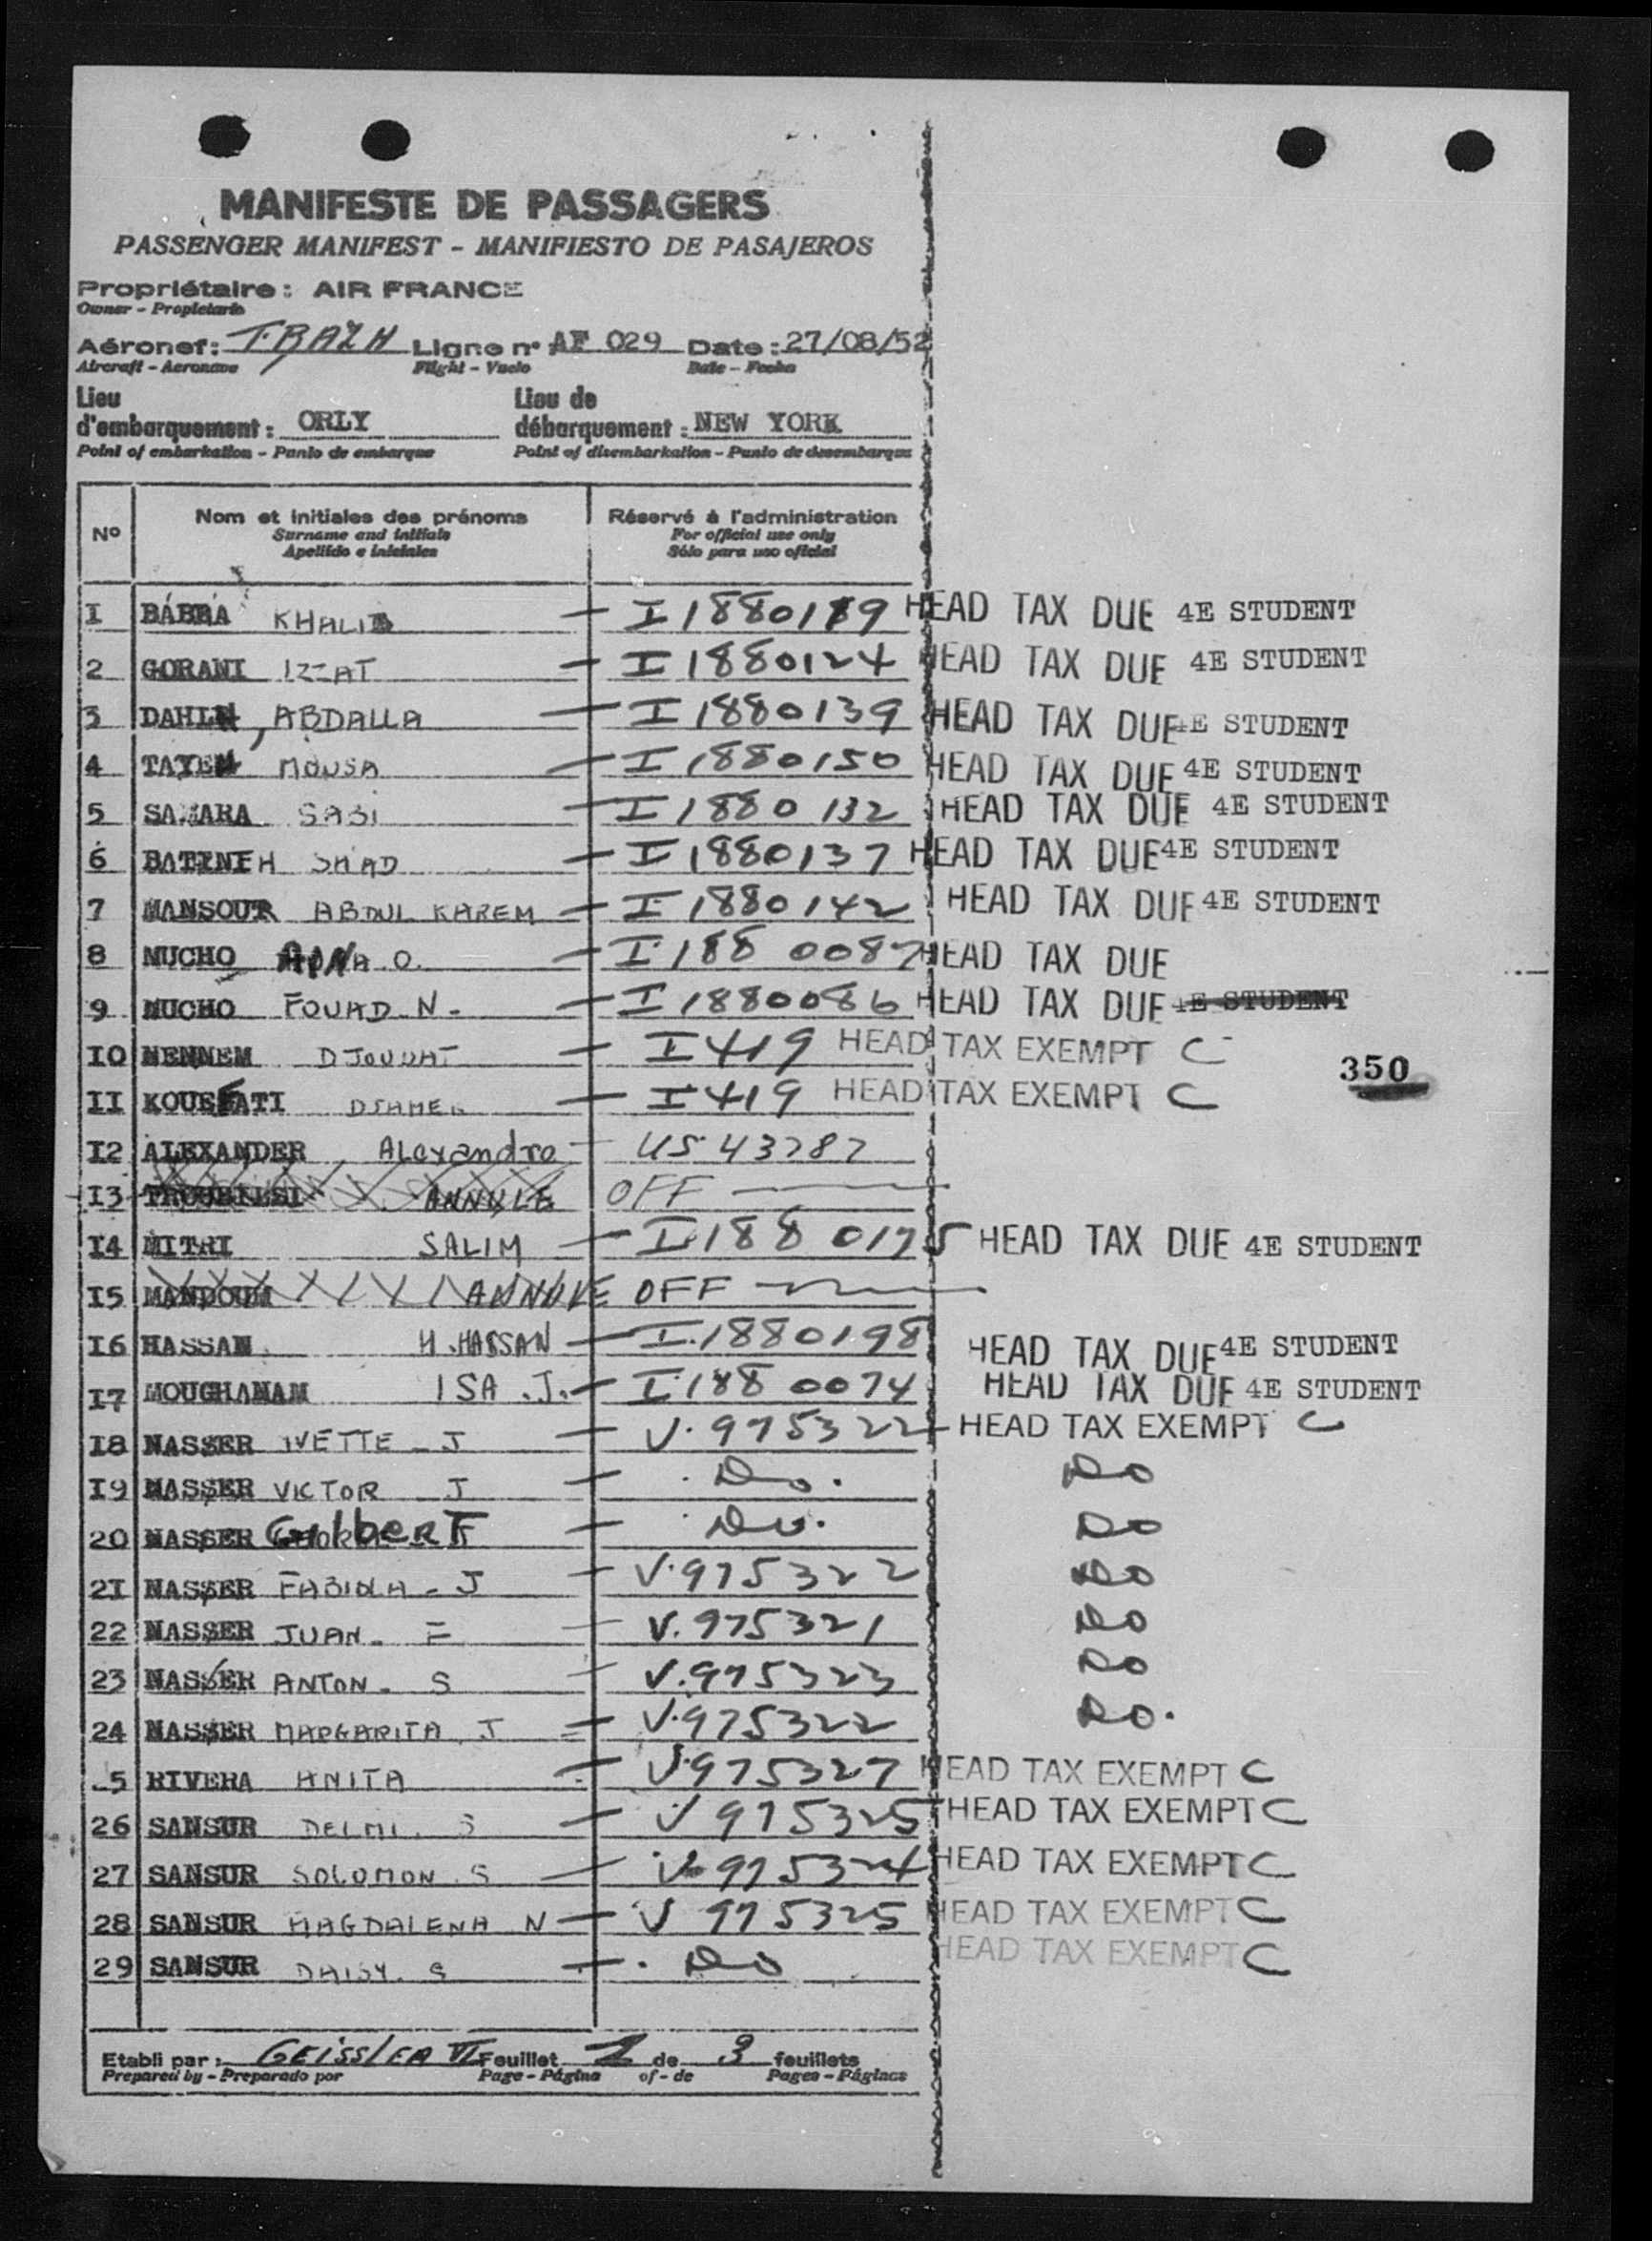 MANIFESTE DE PASSAGERS
PASSENGER MANIFEST - MANIFIESTO DE PASAJEROS
Propriétaire : AIR FRANCE
Owner - Propietario
Aéronef : F.BAZH Ligne n° AF 029 Date : 27/08/52
Aircraft - Aeronave Flight - Vuelo Date - Fecha
Lieu d'embarquement : ORLY Lieu de débarquement : NEW YORK
Point of embarkation - Punto de embarque Point of disembarkation - Punto de desembarque
N° Nom et initiales des prénoms Réservé à l'administration
Surname and initials For official use only
Apellido e iniciales Sólo para uso oficial
I BABBA KHALIB — I 1880189 HEAD TAX DUE 4E STUDENT
2 GORANI IZZAT — I 1880124 HEAD TAX DUE 4E STUDENT
3 DAHLH, ABDALLA — I 1880139 HEAD TAX DUE 4E STUDENT
4 TAYEM MOUSA — I 1880150 HEAD TAX DUE 4E STUDENT
5 SAMARA SABI — I 1880132 HEAD TAX DUE 4E STUDENT
6 BATINEH SHAD — I 1880137 HEAD TAX DUE 4E STUDENT
7 MANSOUR ABDUL KAREM — I 1880142 HEAD TAX DUE 4E STUDENT
8 MUCHO O. — I 1880087 HEAD TAX DUE
9 MUCHO FOUAD N. — I 1880086 HEAD TAX DUE 4E STUDENT
IO HENNEM DJOUDAT — I 419 HEAD TAX EXEMPT C
350
II DJAMEL — I 419 HEAD TAX EXEMPT C
I2 ALEXANDER Alexandre — US 43787
I3 ANNULE OFF —
I4 MITRI SALIM — I 1880175 HEAD TAX DUE 4E STUDENT
I5 MANDOUM ANNULE OFF —
I6 HASSAN H. HASSAN — I.1880198 HEAD TAX DUE 4E STUDENT
I7 MOUGHANAM ISA . J. — I 1880074 HEAD TAX DUE 4E STUDENT
I8 NASSER IVETTE - J — V. 975322 HEAD TAX EXEMPT C
I9 NASSER VICTOR - J — Do. Do
20 NASSER Gilbert — Do. Do
2I NASSER FABIOLA - J — V.975322 Do
22 NASSER JUAN. E — V.975321 Do
23 NASSER ANTON. S — V.975323 Do
24 NASSER MARGARITA . J — V.975322 Do.
5 RIVERA ANITA — V.975327 HEAD TAX EXEMPT C
26 SANSUR DELMI . S — V 975325 HEAD TAX EXEMPT C
27 SANSUR SOLOMON . S — V.975324 HEAD TAX EXEMPT C
28 SANSUR MAGDALENA N — V 975325 HEAD TAX EXEMPT C
29 SANSUR DAISY. S — Do HEAD TAX EXEMPT C
Etabli par : GEISSLER VI Feuillet 1 de 3 feuillets
Prepared by - Preparado por Page - Página of - de Pages - Páginas